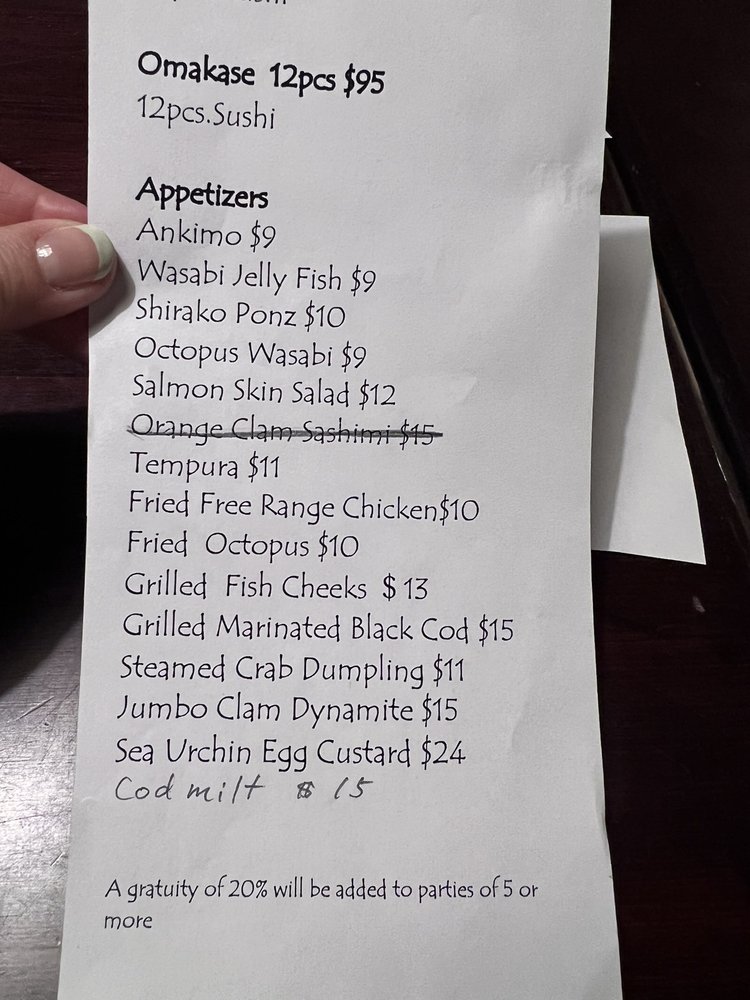 Omakase 12pcs $95
12pcs.Sushi
Appetizers
Ankimo $9
Wasabi Jelly Fish $9
Shirako Ponz $10
Octopus Wasabi $9
Salmon Skin Salad $12
Orange Clam Sashimi $15
Tempura $11
Fried Free Range Chicken$10
Fried Octopus $10
Grilled Fish Cheeks $ 13
Grilled Marinated Black Cod $15
Steamed Crab Dumpling $11
Jumbo Clam Dynamite $15
Sea Urchin Egg Custard $24
Cod milt $ 15
A gratuity of 20% will be added to parties of 5 or
more